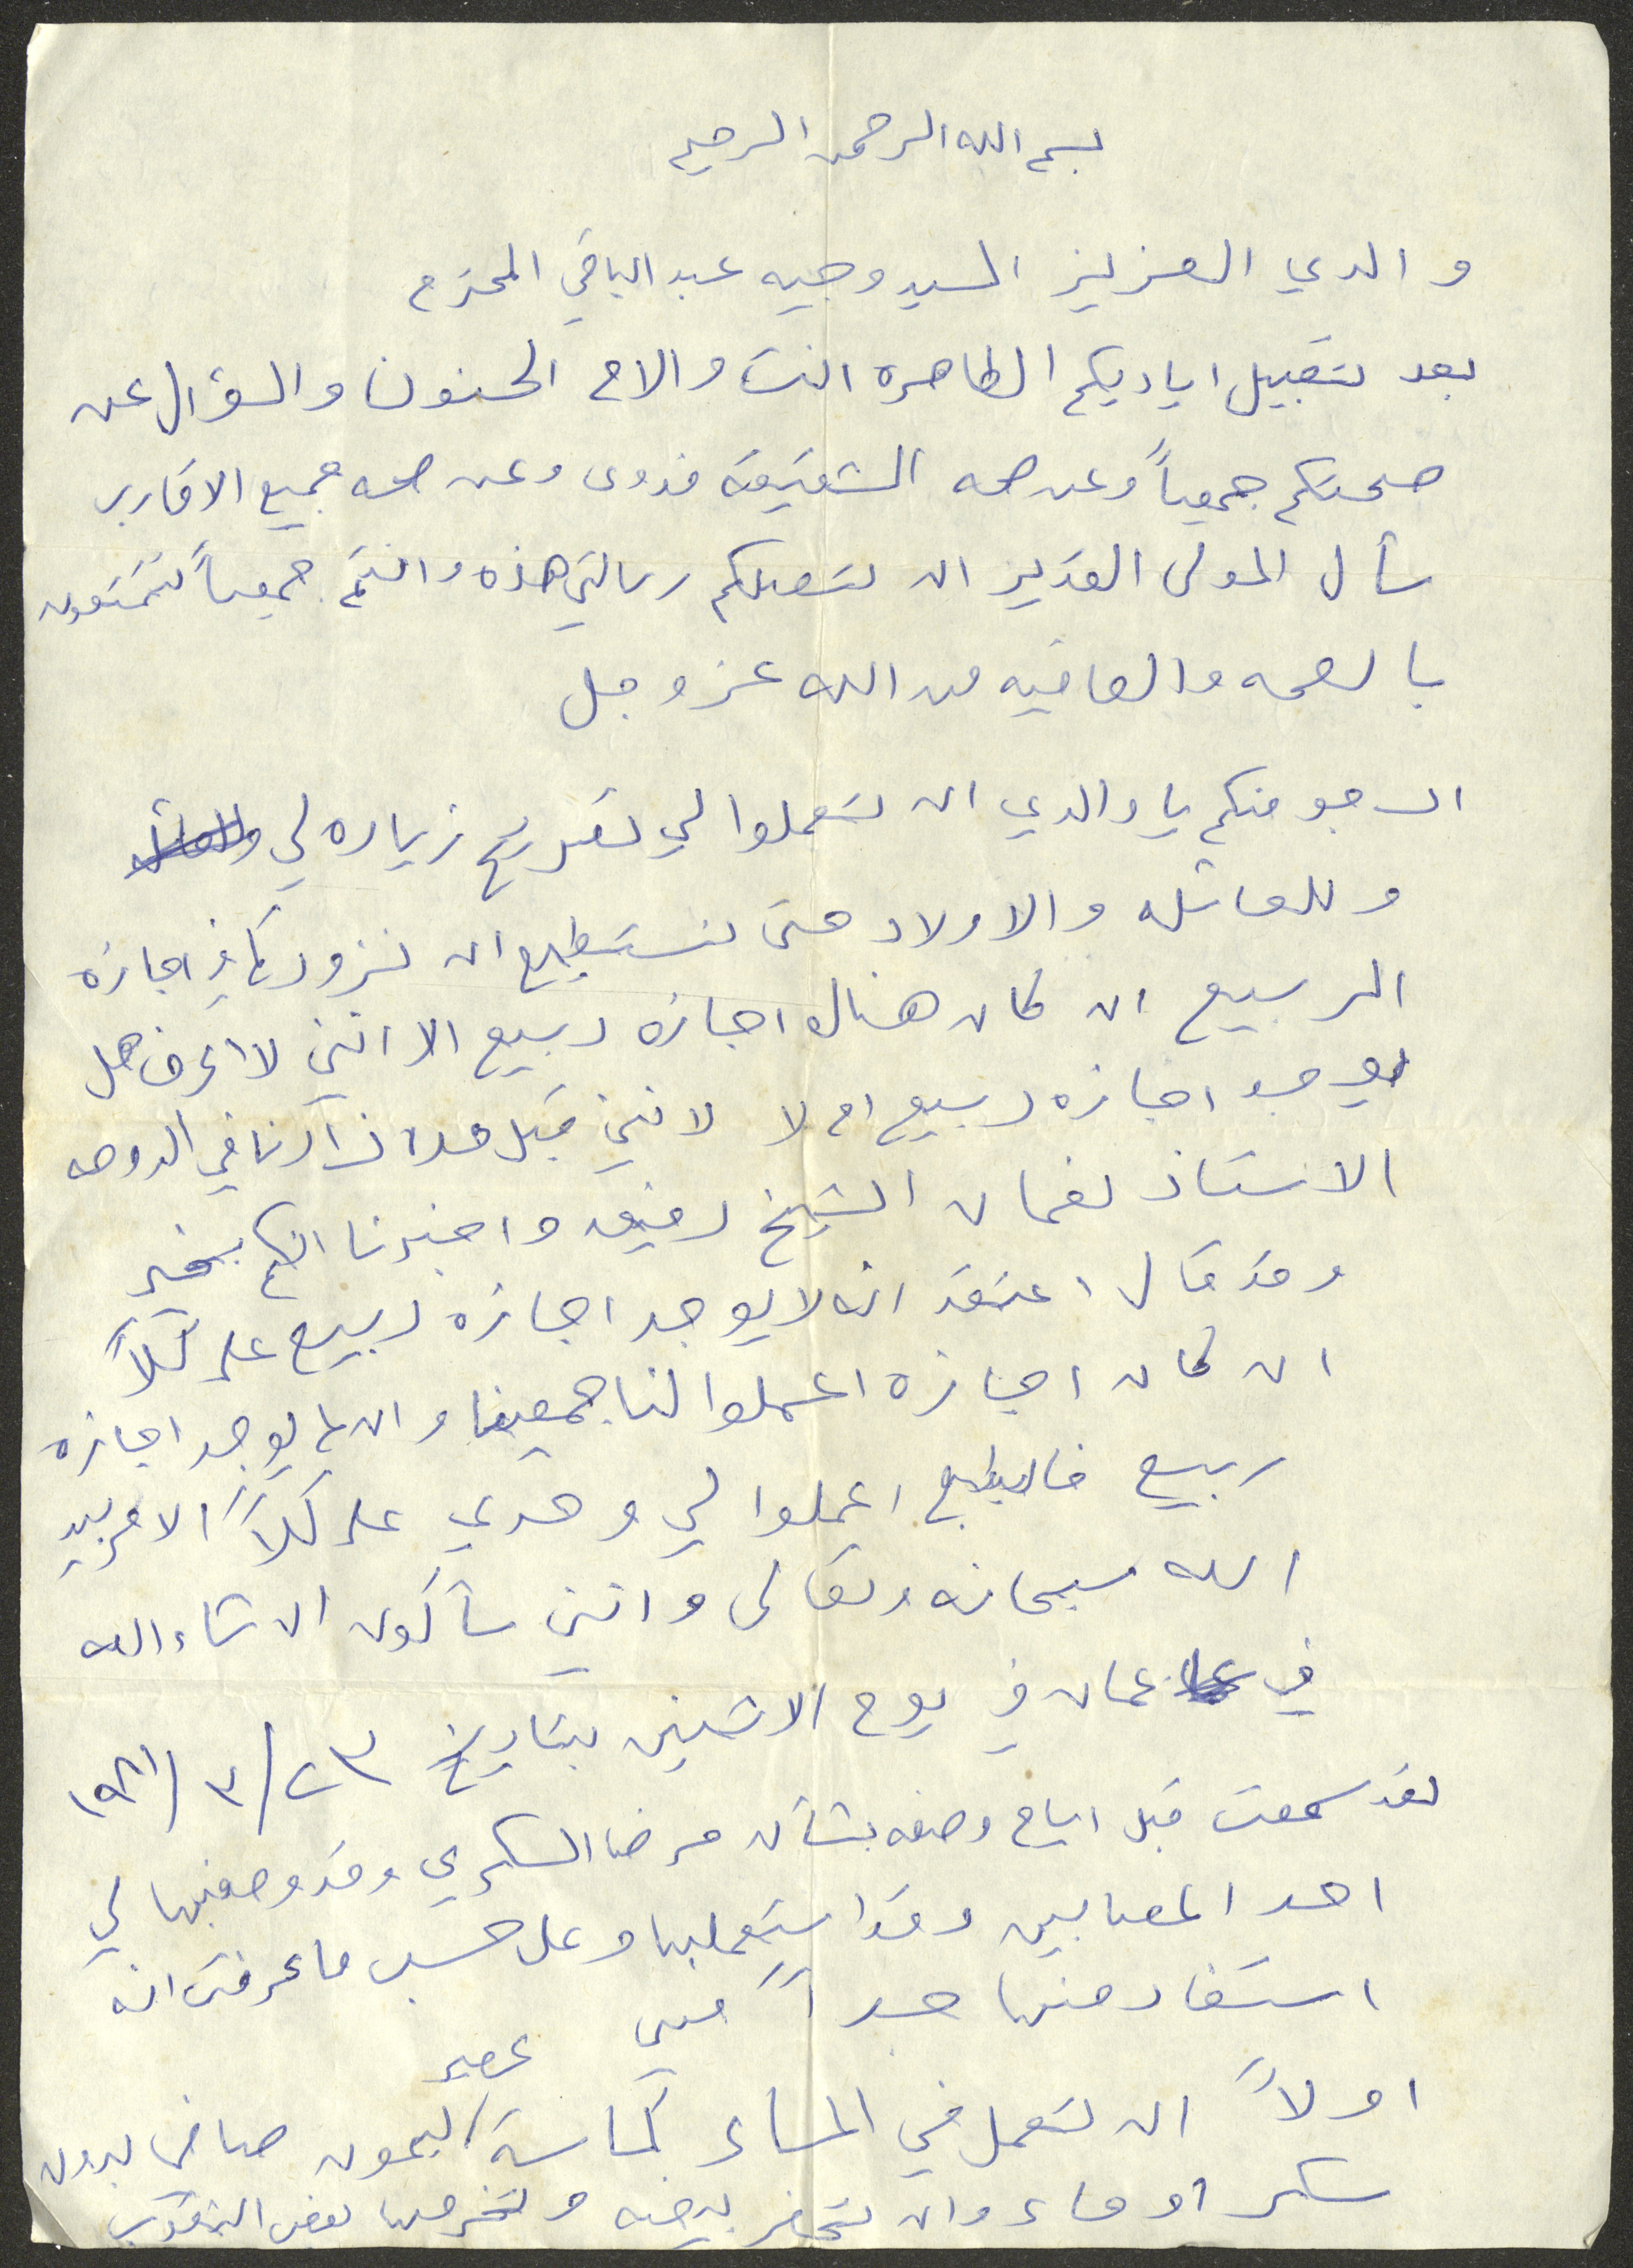 بسم الله الرحمن الرحيم
والدي العزيز السيد وجيه عبد الباقي المحترم
بعد تقبيل اياديكم الطاهره انت والام الحنون والسؤال عن
صحتكم جمعياً وعن صحه الشقيقه فدوى وعن صحه جميع الاقارب
سأل المولى القدير ان تصلكم رسالتي هذه وانتم جميعاً تتمتعون
بالصحه والعافيه من الله عز وجل
ارجو منكم يا والدي ان تعملوا لي تصريح زياره لي
وللعائله والاولاد حتى نستطيع ان نزوركم في اجازه
الربيع ان كان هناك اجازه ربيع الا انني لا اعرف هل
يوجد اجازه ربيع ام لا لانني قبل مده زارنا في الدوحه
الاستاذ نعمان الشيخ رفيق واخبرنا انكم بخير
وقد قال اعتقد انه لا يوجد اجازه ربيع على كلاً
ان كان اجازه اعملوا لنا جميعنا وان لم يوجد اجازه
ربيع فالبطبع اعملوا لي وحدي على كلاً الامر بيد
الله سبحانه وتعالى وانني سأكون ان شاء الله
في عمان في يوم الاثنين بتاريخ ٢٣/٣/١٩٨١
لقد سمعت قبل ايام وصفه بشأن مرض السكري وقد وصفها لي
احد المصابين وقد استعملها وعلى حسب ما عرفت انه
استفاد منها جداً فهي
اولاً ان تعمل في المساء كاسة عصير ليمون صافي بدون
سكر او ماء وان تحضر بيضه وتخرمها بعض الثقوب